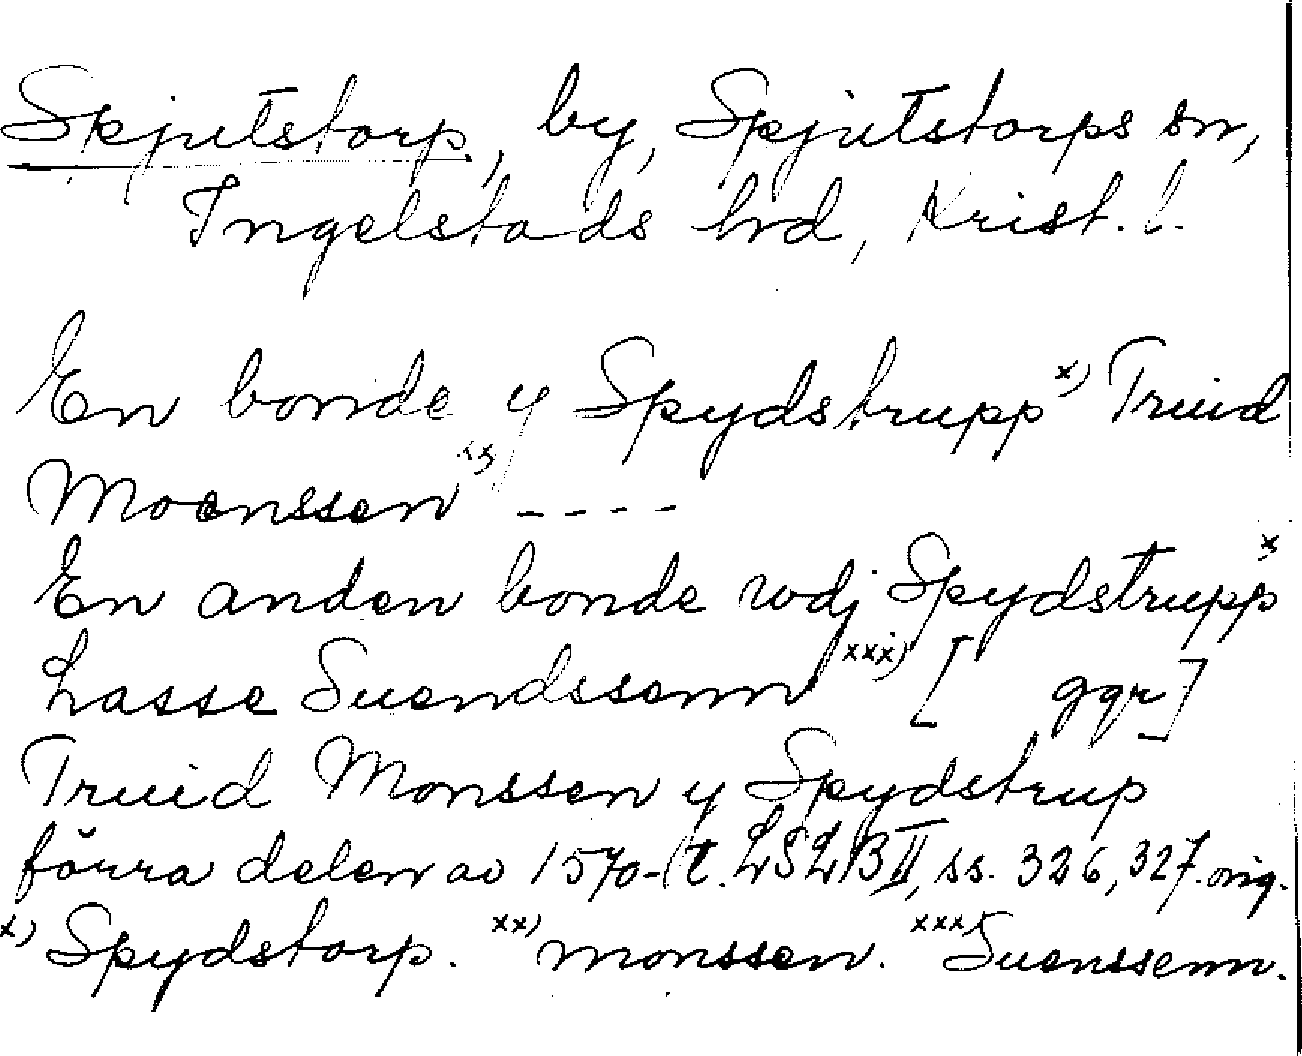 Spjutstorp, by, Spjutstorps sn,
Ingelstads hrd, Krist. l.
En bonde y Spydstrupp x) Truid
Moenssen xx) - - - -
En anden bonde wdj Spydstrupp x)
Lasse Suendssenn xxx) [ ggr]
Truid Monssen y Spydstrup
förra delen av 1570-t. LSLB II, ss. 326, 327. orig.
x) Spydstorp. xx) monssen. xxx) Suenssenn.